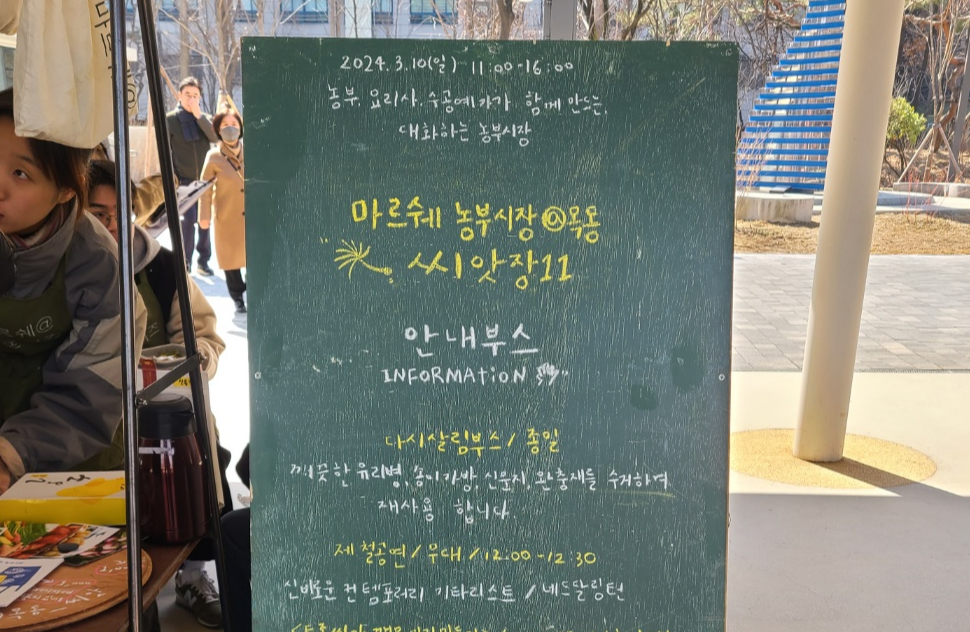 2024.3.10(일) 11:00-16:00
농부, 요리사, 수공예가가 함께 만드는,
대화하는 농부시장
마르쉐 농부시장@목동
씨앗장11
안내부스
INFORMATION
다시살림부스 / 종일
깨끗한 유리병, 종이가방, 신문지, 완충재를 수거하여
재사용 합니다
제철공연 / 무대 / 12:00-12:30
신비로운 컨템포러리 기타리스트 / 네드달링턴